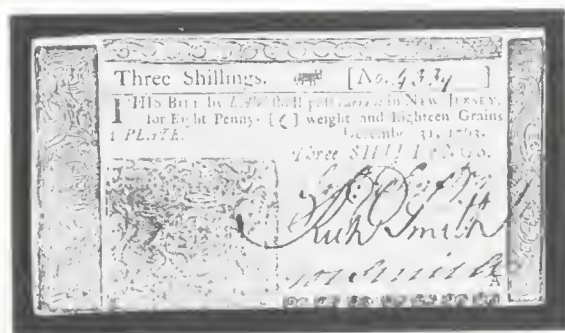 Three Shillings. [No. 4334 ]
THIS BILL by LAW shall pass current in NEW JERSEY,
for Eight Penny- [ ] weight and Eighteen Grains
PLATE. December 31, 1763.
Three SHILLINGS.
Smith
Smith
A